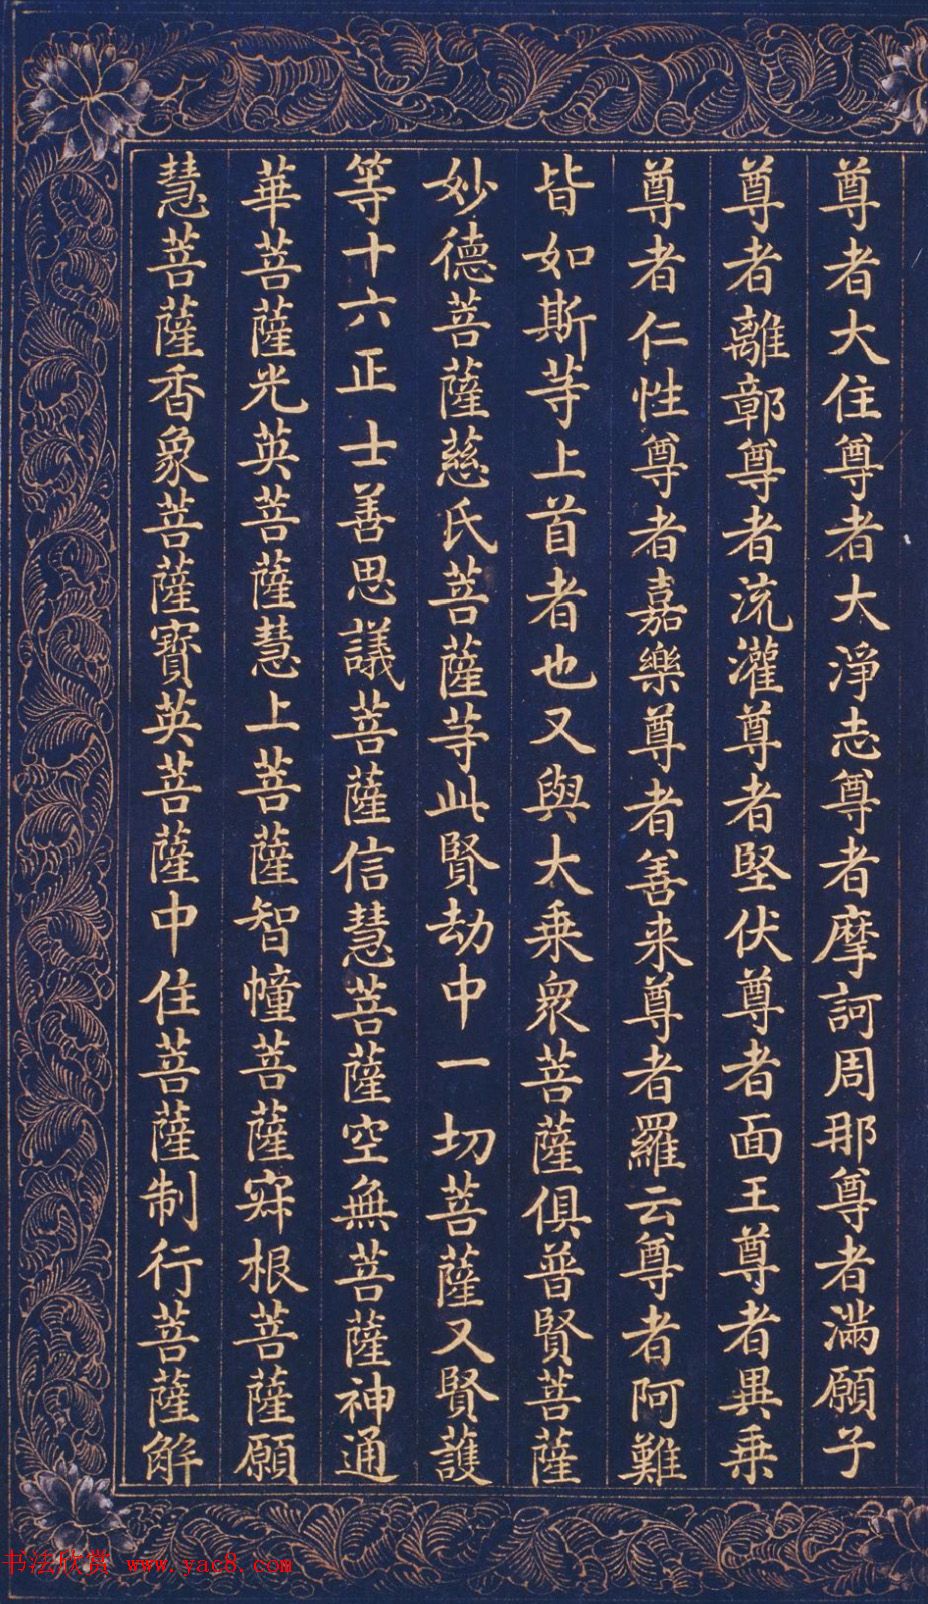 尊者大住尊者大淨志尊者摩訶周那尊者滿願子
尊者離鄣尊者流灌尊者堅伏尊者面王尊者異乗
尊者仁性尊者嘉樂尊者善来尊者羅云尊者阿難
皆如斯等上首者也又與大乗衆菩薩俱普賢菩薩
妙德菩薩慈氏菩薩等此賢劫中一切菩薩又賢護
等十六正士善思議菩薩信慧菩薩空無菩薩神通
華菩薩光英菩薩慧上菩薩智幢菩薩寂根菩薩願
慧菩薩香象菩薩寳英菩薩中住菩薩制行菩薩解
书法欣赏 www.yac8.com